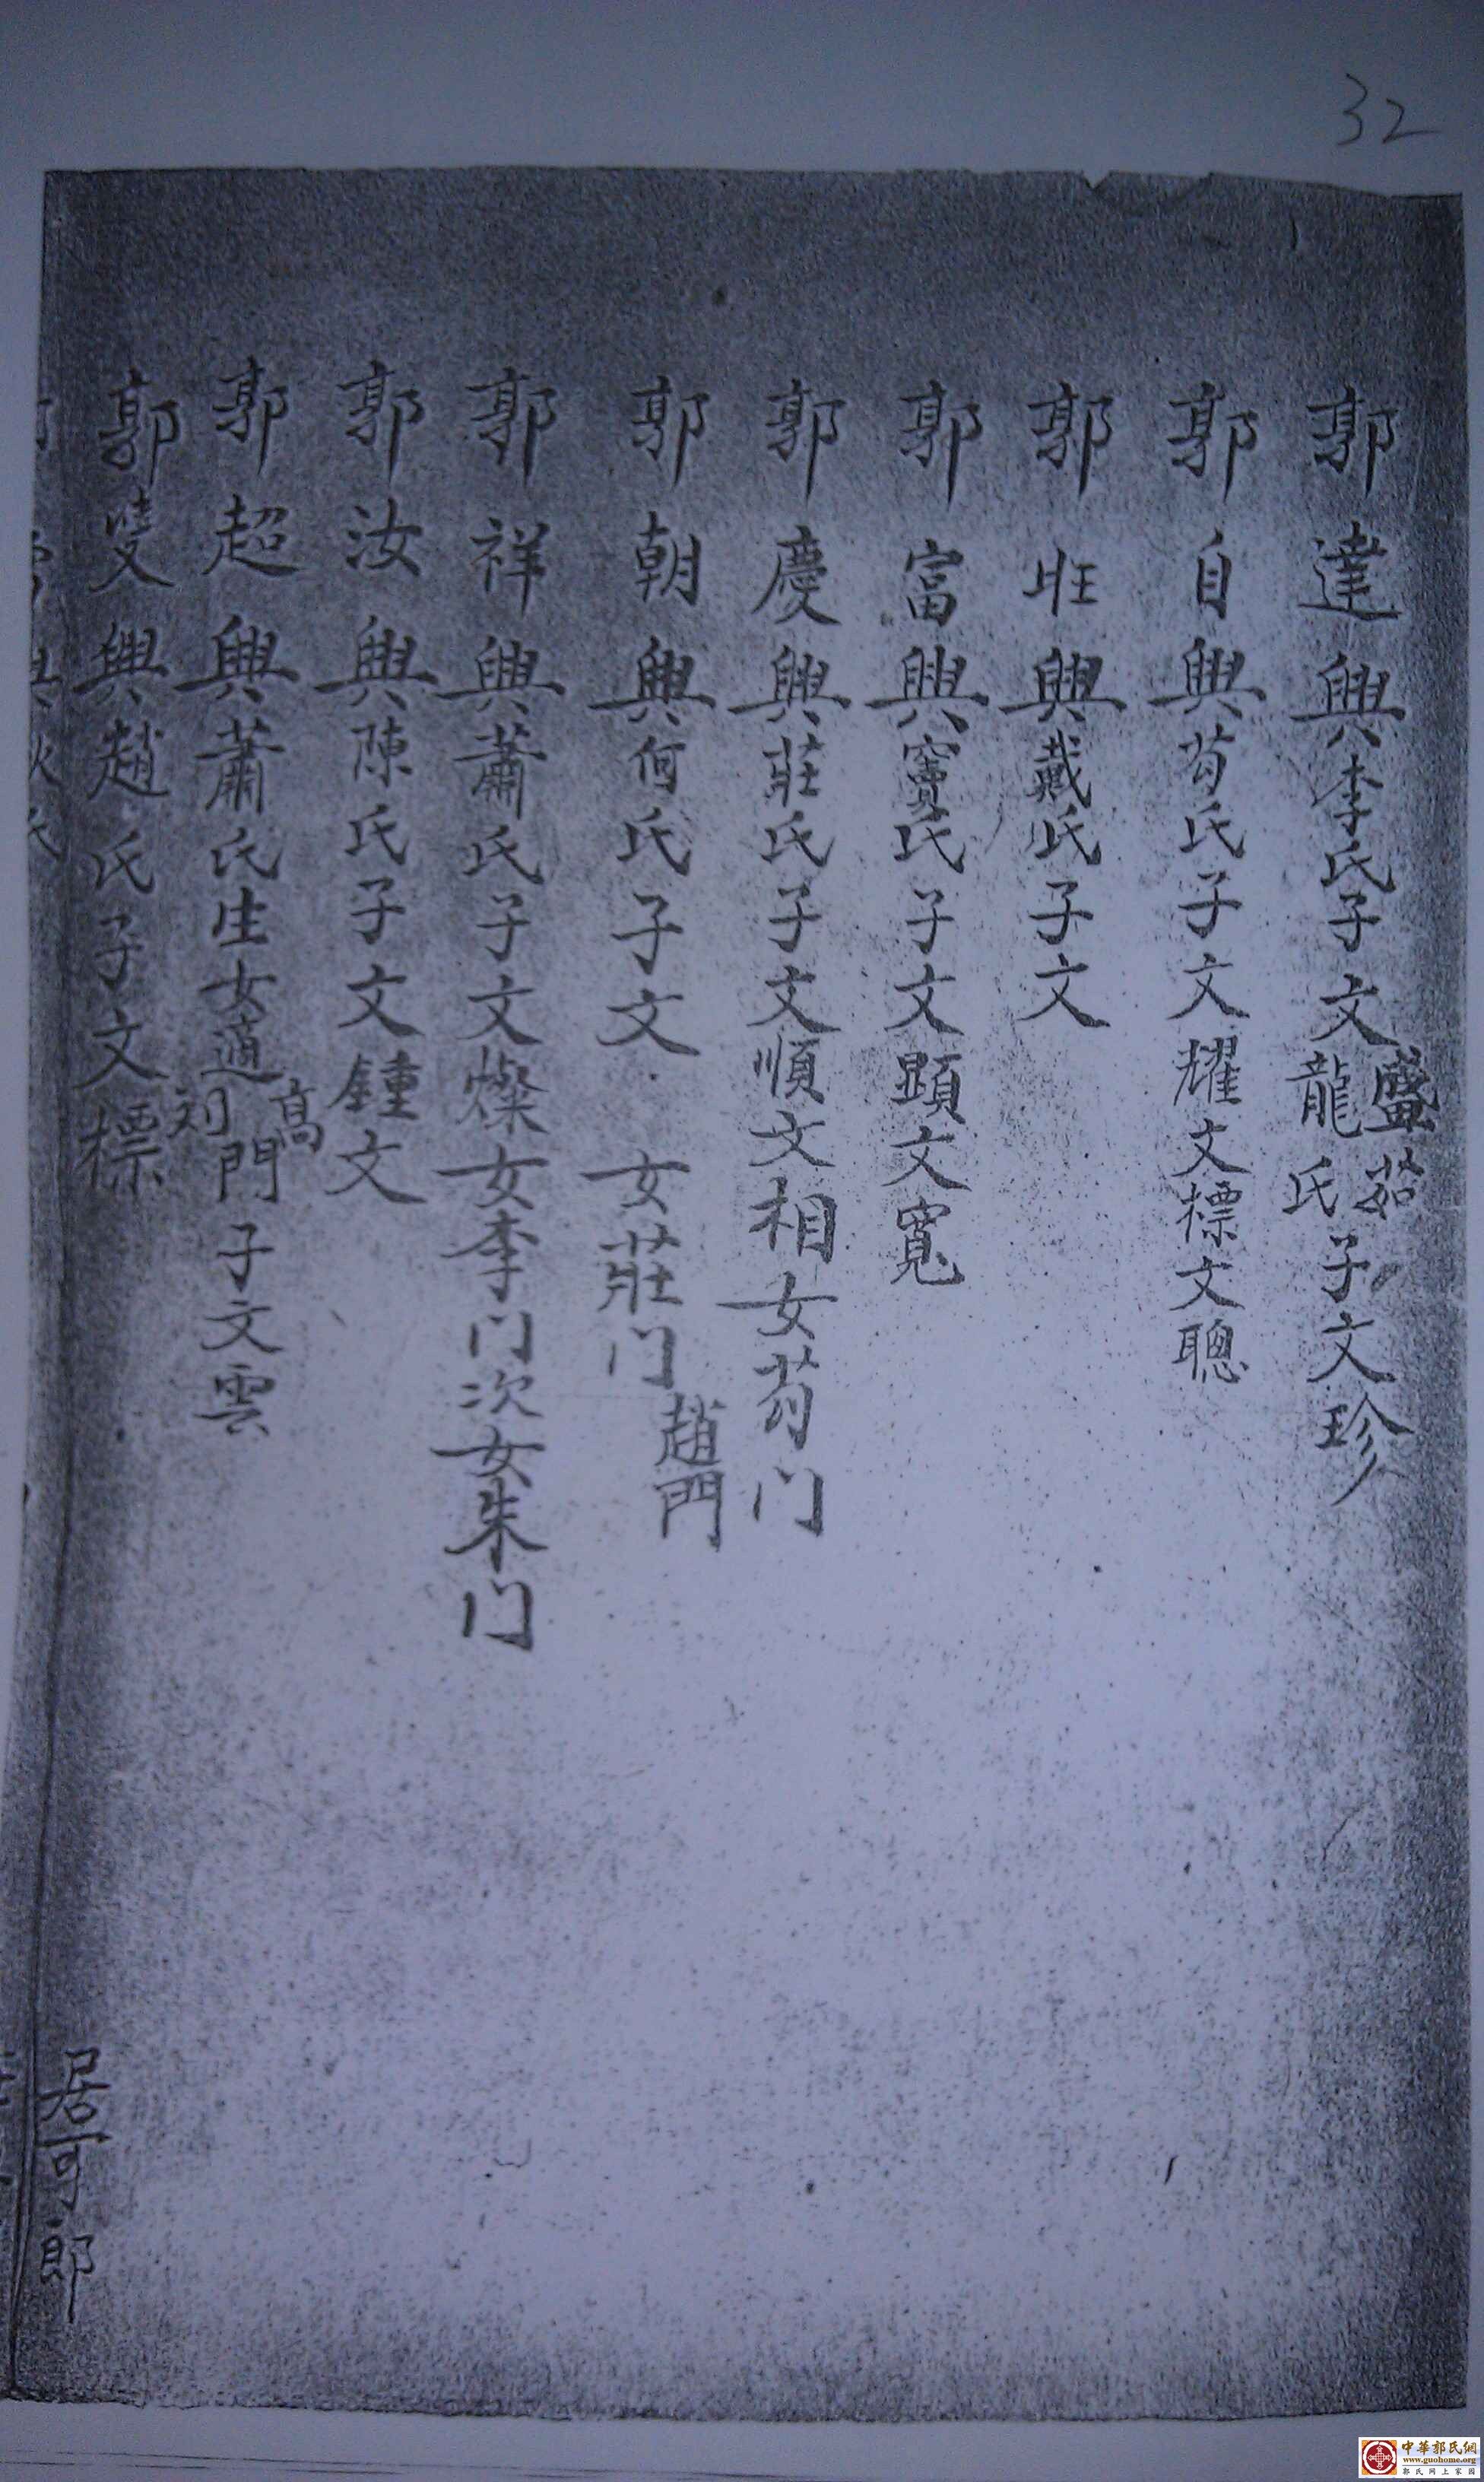 32
郭達興李氏子文盛龍茹氏子文珍
郭自興芶氏子文耀文標文聰
郭旺興戴氏子文
郭富興竇氏子文顕文寬
郭慶興莊氏子文順文相女芶门
郭朝興何氏子文 女莊门趙門
郭祥興蕭氏子文燦女李门次女朱门
郭汝興陳氏子文鍾文
郭超興蕭氏生女適高刘門子文雲
郭興趙氏子文標
居可郎
中華郭氏網
www.guohome.org
郭氏网上家园